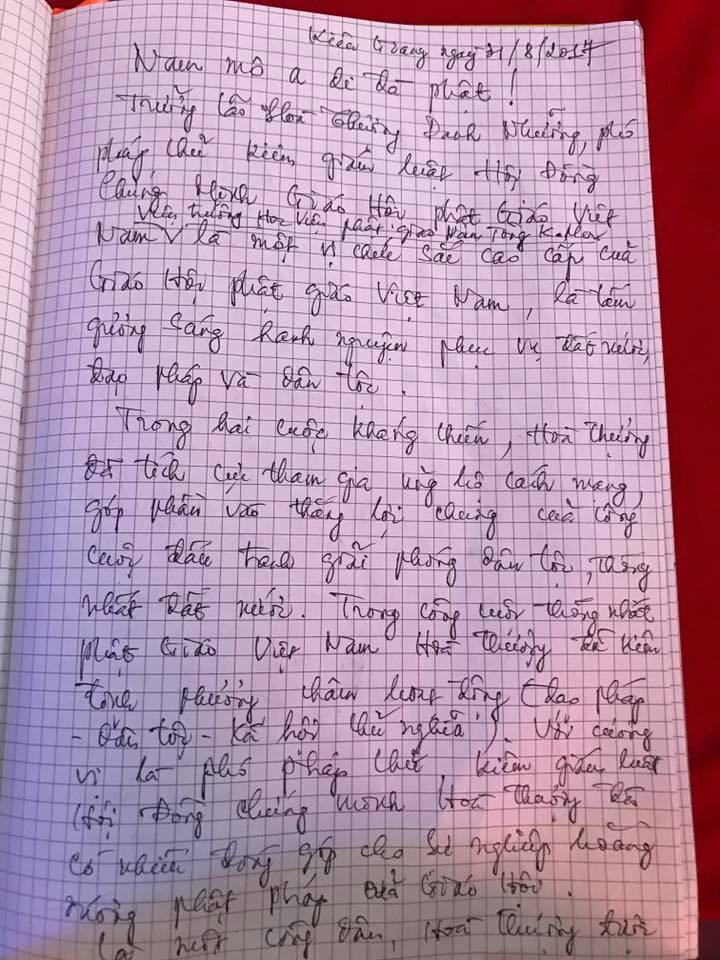 Kiên Giang ngày 31/8/2017
Nam mô a di đà phật!
Trưởng lão Hoà Thượng Danh Nhưỡng, phó
pháp chủ kiêm giám luật Hội Đồng
Chứng Minh Giáo Hội phật Giáo Việt
Viện trưởng Học Viện phật giáo Nam Tông Khmer
Nam là một vị chức sắc cao cấp của
Giáo Hội phật giáo Việt Nam, là tấm
gương sáng hành nguyện phục vụ đất nước,
đạo pháp và dân tộc.
Trong hai cuộc kháng chiến, Hoà thượng
đã tích cực tham gia ủng hộ cách mạng,
góp phần vào thắng lợi chung của công
cuộc đấu tranh giải phóng dân tộc, thống
nhất đất nước. Trong công cuộc thống nhất
phật Giáo Việt Nam Hoà thượng đã kiên
định phương châm hành động (đạo pháp
- Dân tộc - Xã hội chủ nghĩa). Với cương
vị là phó pháp chủ, kiêm giám luật
Hội Đồng chứng minh Hoà thượng đã
có nhiều đóng góp cho sự nghiệp hoằng
dương phật pháp của Giáo Hội.
Là một công dân, Hoà thượng được